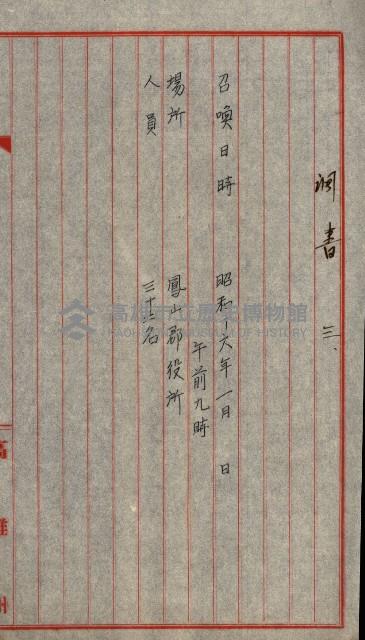 調書 三、
召喚日時 昭和十六年一月 日
午前九時
場所 鳳山郡役所
人員 三十三名
高雄州
高雄市立歷史博物館
KAOHSIUNG MUSEUM OF HISTORY